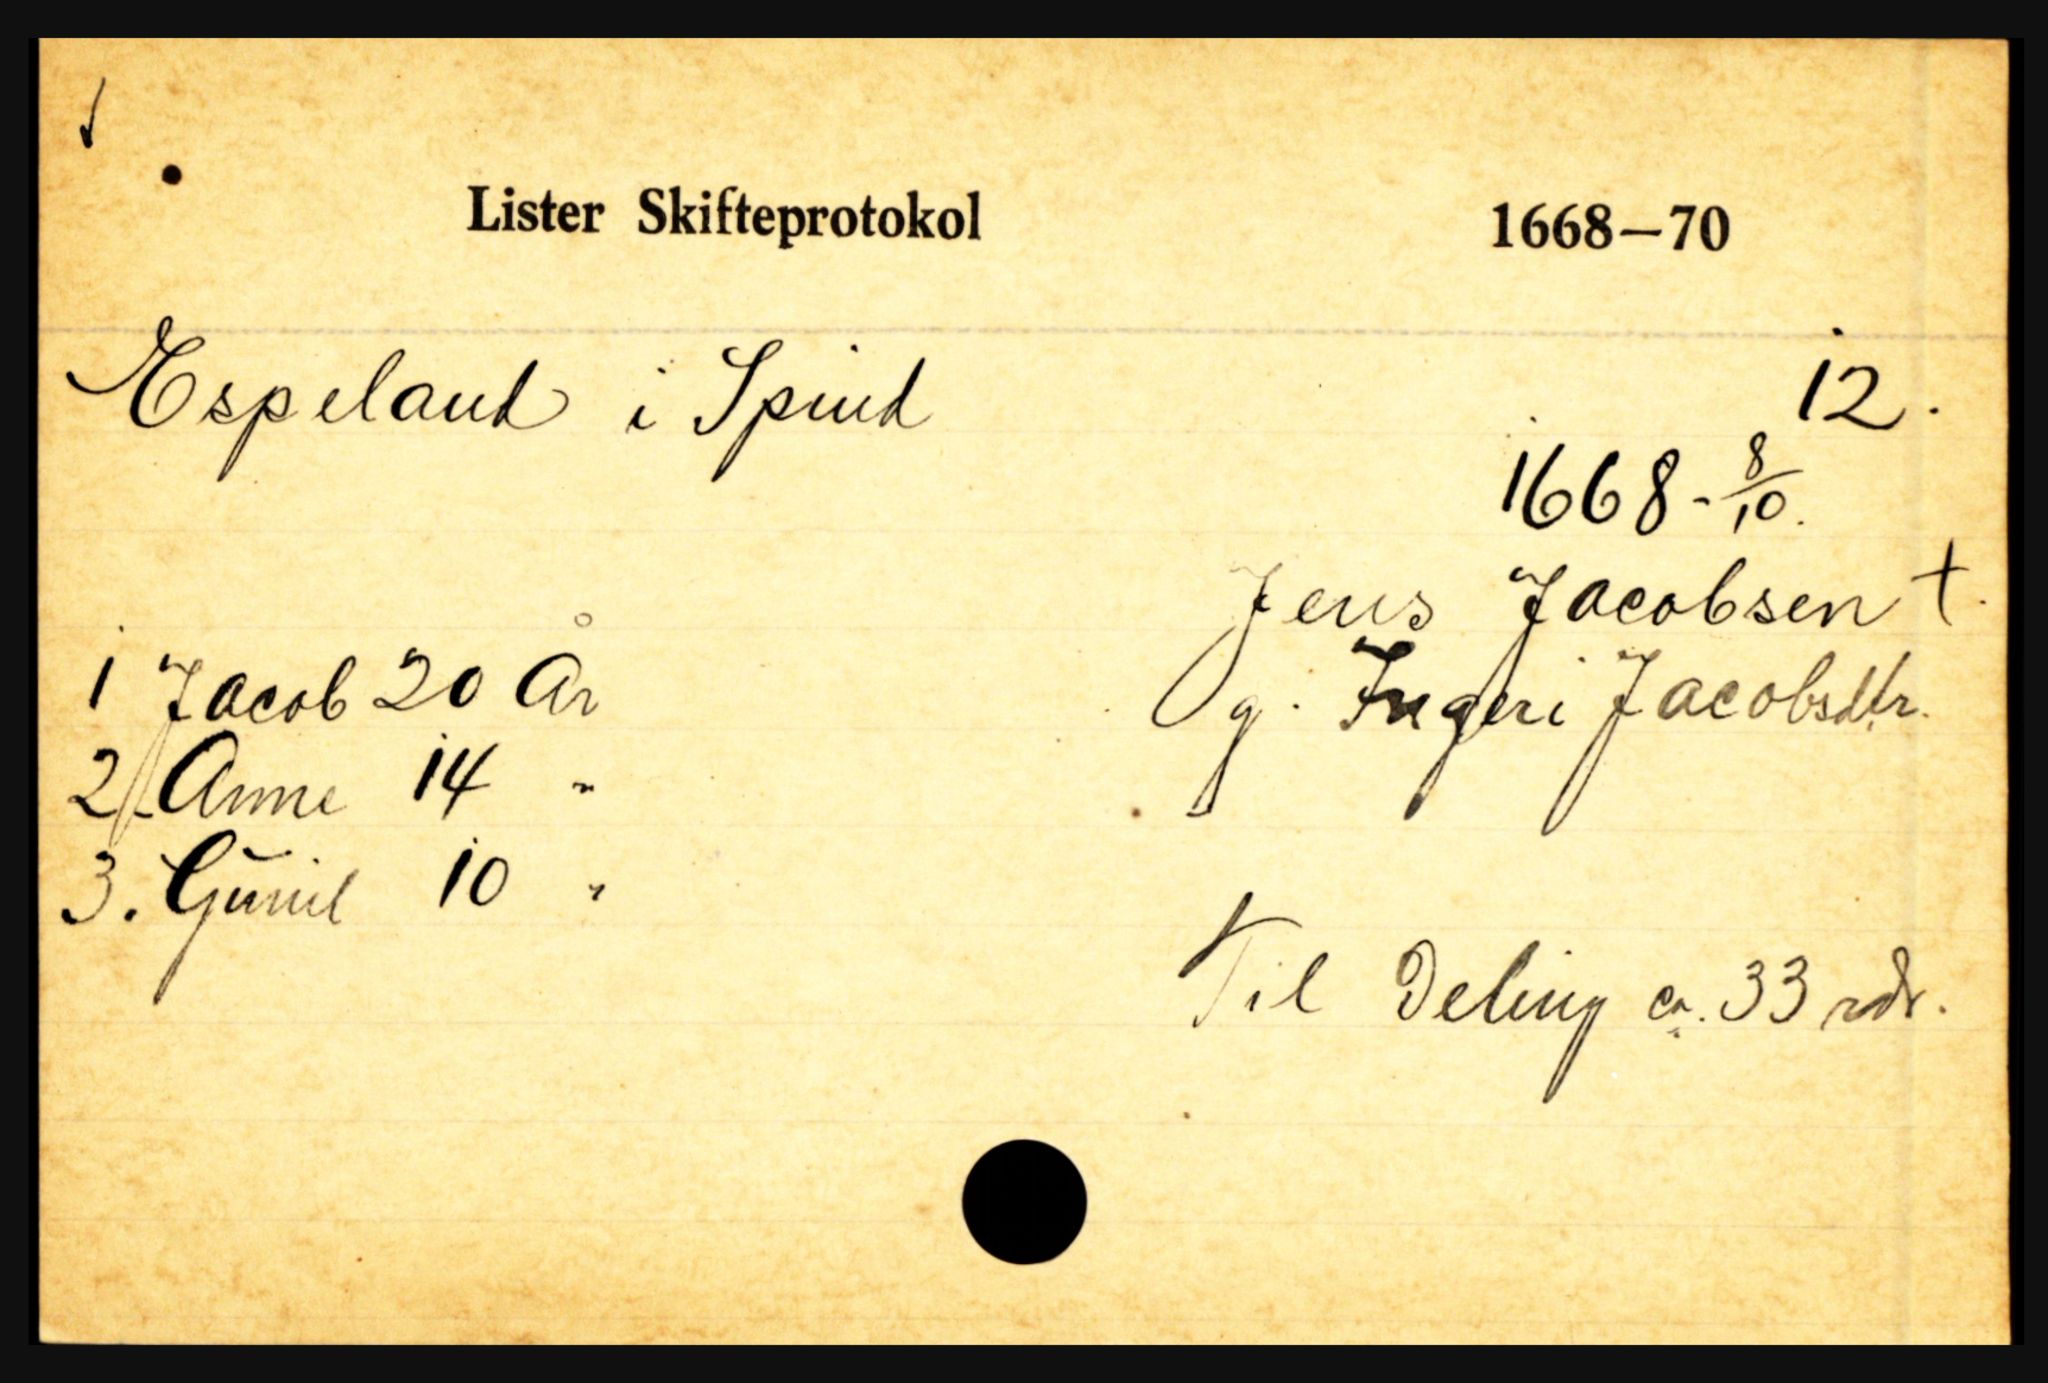 Lister Skifteprotokol 1668—70
Espeland i Spind 12.
1668 - 8/10.
Jens Jacobsen +.
g. Ingeri Jacobsdtr.
1 Jacob 20 År
2 Anne 14 "
3. Gunil 10 "
Til Deling ca. 33 rdr.